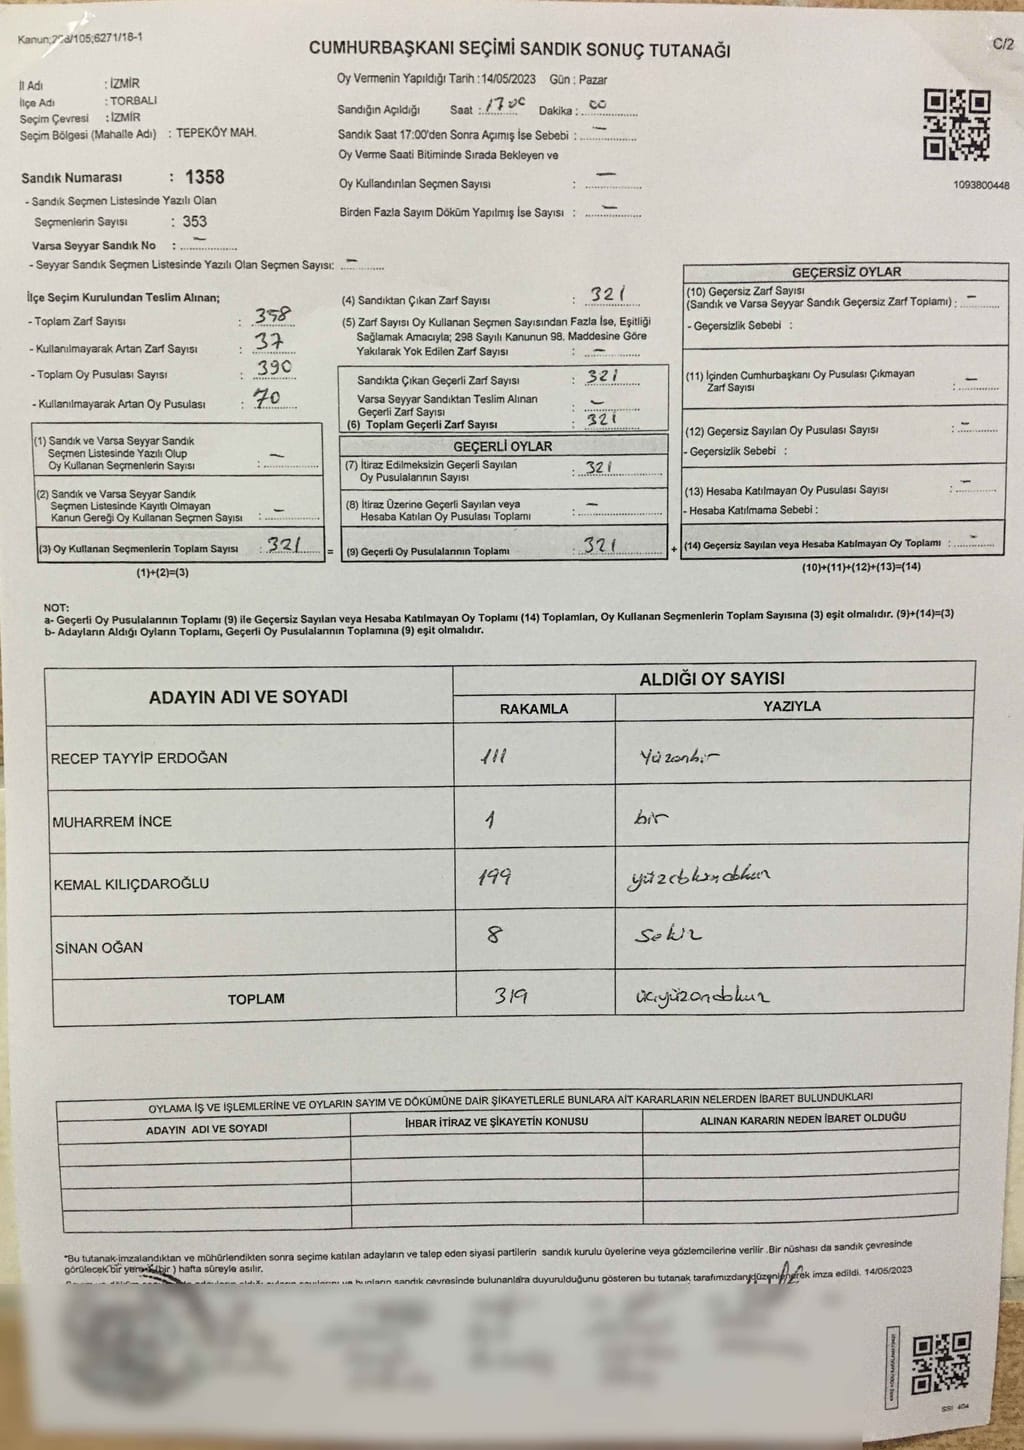 Kanun:298/105;6271/18-1
CUMHURBAŞKANI SEÇİMİ SANDIK SONUÇ TUTANAĞI
C/2
İl Adı : İZMİR
İlçe Adı : TORBALI
Seçim Çevresi : İZMİR
Seçim Bölgesi (Mahalle Adı) : TEPEKÖY MAH.
Sandık Numarası : 1358
- Sandık Seçmen Listesinde Yazılı Olan
Seçmenlerin Sayısı : 353
Varsa Seyyar Sandık No : —
- Seyyar Sandık Seçmen Listesinde Yazılı Olan Seçmen Sayısı: —
Oy Vermenin Yapıldığı Tarih : 14/05/2023 Gün : Pazar
Sandığın Açıldığı Saat : 17 00 Dakika : 00
Sandık Saat 17:00'den Sonra Açımış İse Sebebi : —
Oy Verme Saati Bitiminde Sırada Bekleyen ve
Oy Kullandırılan Seçmen Sayısı : —
Birden Fazla Sayım Döküm Yapılmış İse Sayısı : —
1093800448
İlçe Seçim Kurulundan Teslim Alınan;
- Toplam Zarf Sayısı : 358
- Kullanılmayarak Artan Zarf Sayısı : 37
- Toplam Oy Pusulası Sayısı : 390
- Kullanılmayarak Artan Oy Pusulası : 70
(1) Sandık ve Varsa Seyyar Sandık
Seçmen Listesinde Yazılı Olup
Oy Kullanan Seçmenlerin Sayısı : —
(2) Sandık ve Varsa Seyyar Sandık
Seçmen Listesinde Kayıtlı Olmayan
Kanun Gereği Oy Kullanan Seçmen Sayısı : —
(3) Oy Kullanan Seçmenlerin Toplam Sayısı : 321 =
(1)+(2)=(3)
(4) Sandıktan Çıkan Zarf Sayısı : 321
(5) Zarf Sayısı Oy Kullanan Seçmen Sayısından Fazla İse, Eşitliği
Sağlamak Amacıyla; 298 Sayılı Kanunun 98. Maddesine Göre
Yakılarak Yok Edilen Zarf Sayısı : —
Sandıkta Çıkan Geçerli Zarf Sayısı : 321
Varsa Seyyar Sandıktan Teslim Alınan
Geçerli Zarf Sayısı : —
(6) Toplam Geçerli Zarf Sayısı : 321
GEÇERLİ OYLAR
(7) İtiraz Edilmeksizin Geçerli Sayılan
Oy Pusulalarının Sayısı : 321
(8) İtiraz Üzerine Geçerli Sayılan veya
Hesaba Katılan Oy Pusulası Toplamı : —
(9) Geçerli Oy Pusulalarının Toplamı : 321 +
GEÇERSİZ OYLAR
(10) Geçersiz Zarf Sayısı
(Sandık ve Varsa Seyyar Sandık Geçersiz Zarf Toplamı) : —
- Geçersizlik Sebebi :
(11) İçinden Cumhurbaşkanı Oy Pusulası Çıkmayan
Zarf Sayısı : —
(12) Geçersiz Sayılan Oy Pusulası Sayısı : —
- Geçersizlik Sebebi :
(13) Hesaba Katılmayan Oy Pusulası Sayısı : —
- Hesaba Katılmama Sebebi :
(14) Geçersiz Sayılan veya Hesaba Katılmayan Oy Toplamı : —
(10)+(11)+(12)+(13)=(14)
NOT:
a- Geçerli Oy Pusulalarının Toplamı (9) ile Geçersiz Sayılan veya Hesaba Katılmayan Oy Toplamı (14) Toplamları, Oy Kullanan Seçmenlerin Toplam Sayısına (3) eşit olmalıdır. (9)+(14)=(3)
b- Adayların Aldığı Oyların Toplamı, Geçerli Oy Pusulalarının Toplamına (9) eşit olmalıdır.
ADAYIN ADI VE SOYADI
ALDIĞI OY SAYISI
RAKAMLA YAZIYLA
RECEP TAYYİP ERDOĞAN 111 Yüzonbir
MUHARREM İNCE 1 bir
KEMAL KILIÇDAROĞLU 199 yüzdoksandokuz
SİNAN OĞAN 8 Sekiz
TOPLAM 319 üçyüzondokuz
OYLAMA İŞ VE İŞLEMLERİNE VE OYLARIN SAYIM VE DÖKÜMÜNE DAİR ŞİKAYETLERLE BUNLARA AİT KARARLARIN NELERDEN İBARET BULUNDUKLARI
ADAYIN ADI VE SOYADI İHBAR İTİRAZ VE ŞİKAYETİN KONUSU ALINAN KARARIN NEDEN İBARET OLDUĞU
"Bu tutanak imzalandıktan ve mühürlendikten sonra seçime katılan adayların ve talep eden siyasi partilerin sandık kurulu üyelerine veya gözlemcilerine verilir .Bir nüshası da sandık çevresinde
görülecek bir yere (bir ) hafta süreyle asılır.
ve bunların sandık çevresinde bulunanlara duyurulduğunu gösteren bu tutanak tarafımızdan düzenlenerek imza edildi. 14/05/2023
SSI 404